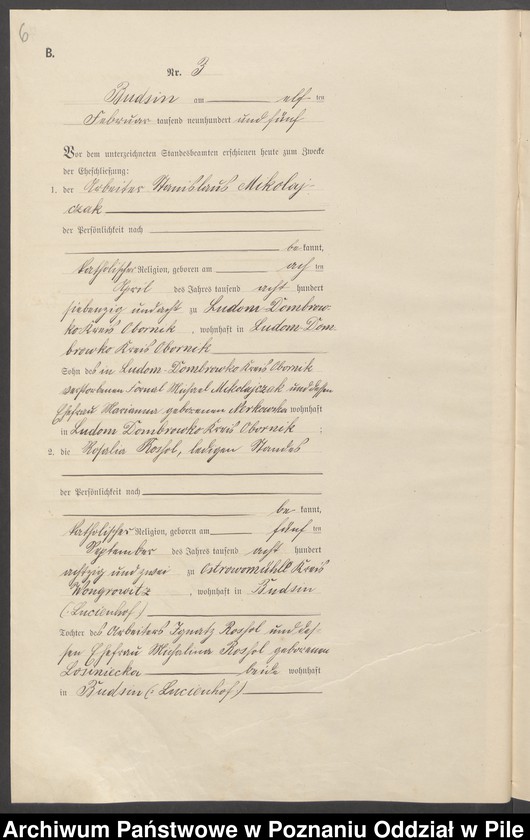 6
B.
Nr. 3
Budsin am elf ten
Februar tausend neunhundert und fünf
Vor dem unterzeichneten Standesbeamten erschienen heute zum Zwecke
der Eheschließung:
1. der Arbeiter Stanislaus Mikolaj-
czak
der Persönlichkeit nach
be kannt,
katholischer Religion, geboren am ach ten
April des Jahres tausend acht hundert
siebenzig und acht zu Ludom-Dombrow-
ko Kreis Obornik, wohnhaft in Ludom-Dom
browko Kreis Obornik
Sohn des in Ludom-Dombrowko Kreis Obornik
verstorbenen Fornal Michael Mikolajczak und dessen
Ehefrau Marianna geborenen wohnhaft
in Ludom Dombrowko Kreis Obornik ;
2. die Rosalia Rossol, ledigen Standes
der Persönlichkeit nach
be kannt,
katholischer Religion, geboren am fünf ten
September des Jahres tausend acht hundert
achtzig und zwei zu Ostrowomühle Kreis
Wongrowitz, wohnhaft in Budsin
(: Lucienhof)
Tochter des Arbeiters Ignatz Rossol und des-
sen Ehefrau Michalina Rossol geborenen
Losiniecka beide wohnhaft
in Budsin (: Lucienhof)
Archiwum Państwowe w Poznaniu Oddział w Pile